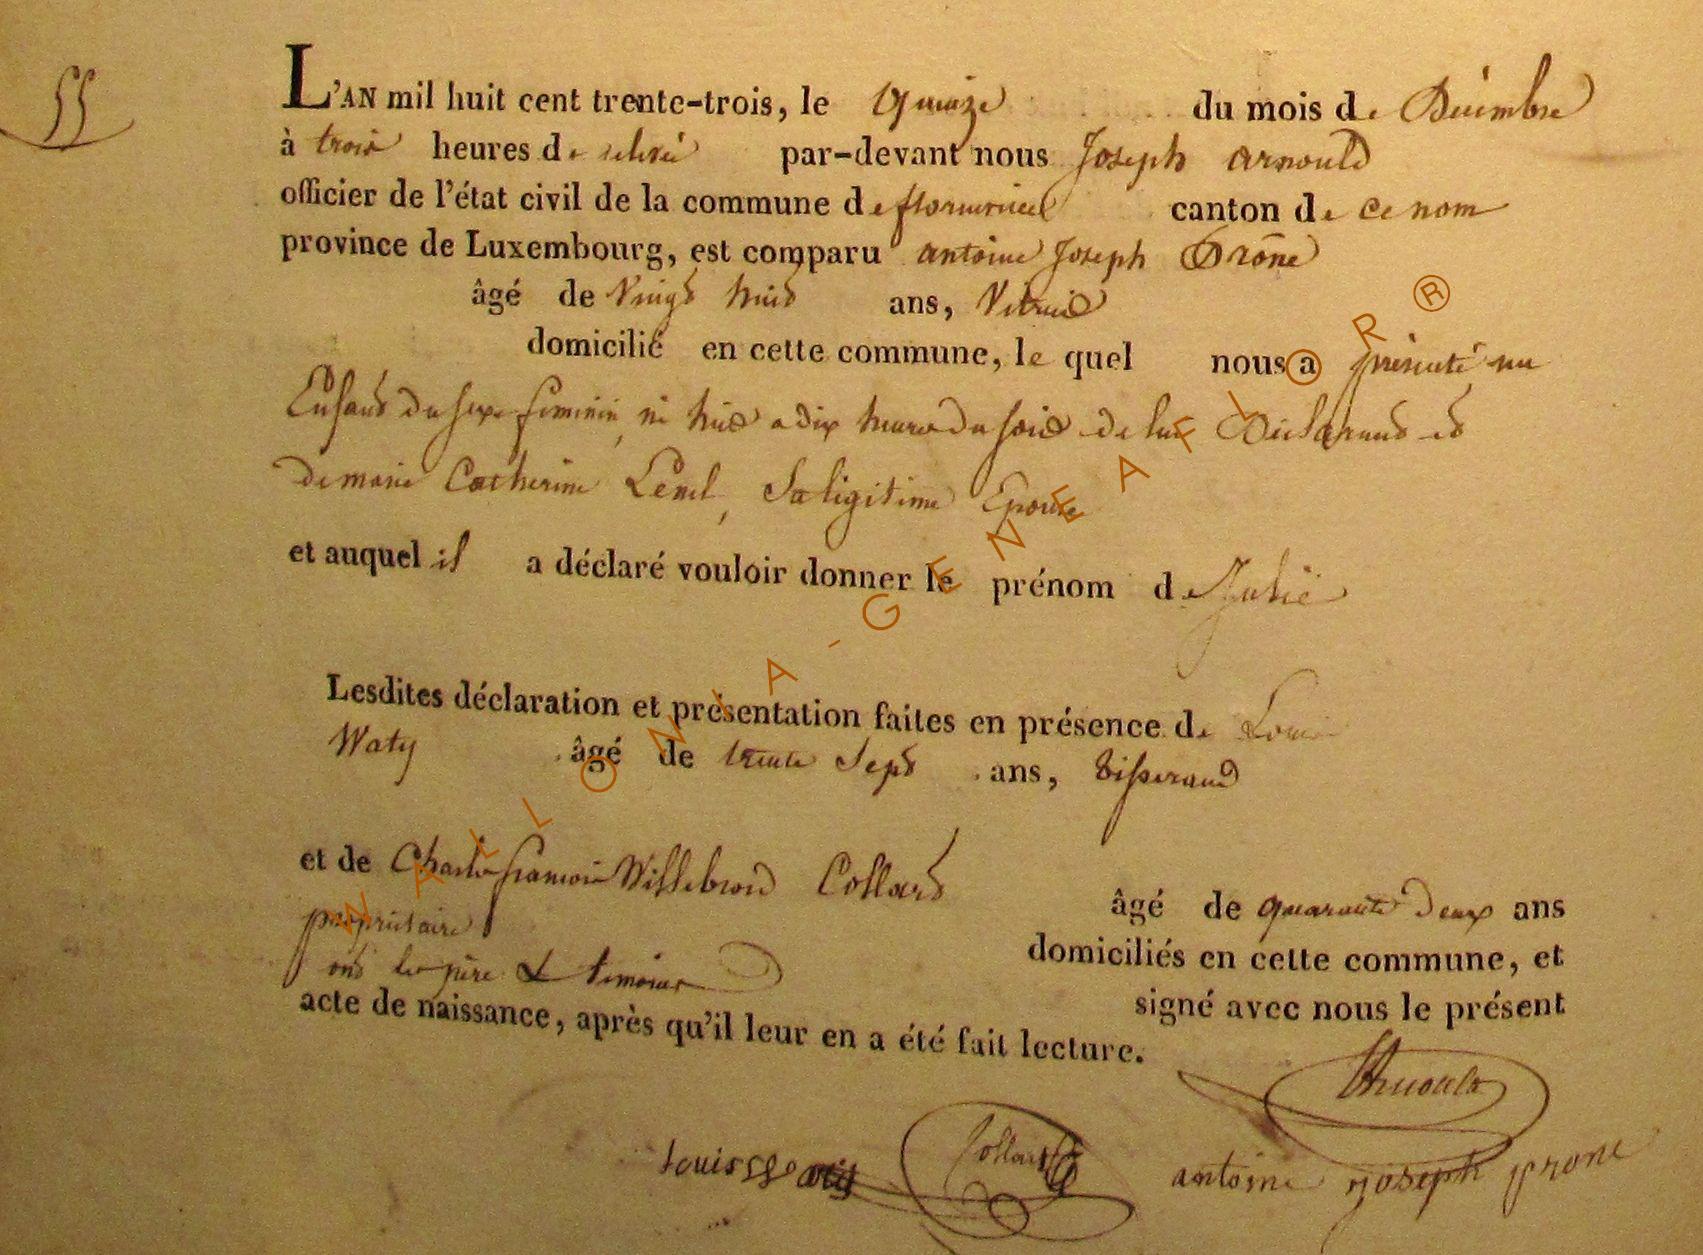 55
L'AN mil huit cent trente-trois, le quinze du mois de Décembre
à trois heures de relevé par-devant nous Joseph arnould
officier de l'état civil de la commune de florenville canton de ce nom
province de Luxembourg, est comparu antoine Joseph Drône
âgé de Vingt huit ans, Vitrier
domicilié en cette commune, le quel nous a présenté un
Enfant du sexe feminin, né hier a dix heures du soir de lui Déclarant et
de marie Catherine sa légitime Epouse
et auquel il a déclaré vouloir donner le prénom de Julie
Lesdites déclaration et présentation faites en présence de Louis
Waty âgé de trente Sept ans, tisserand
et de Charles francois Willebrord Collard
âgé de quarante Deux ans
propriétaire
domiciliés en cette commune, et
ont les père & temoins signé avec nous le présent
acte de naissance, après qu'il leur en a été fait lecture.
Arnould
Louis Collard antoine joseph drone
WALLONIA-GENEAFLOR®